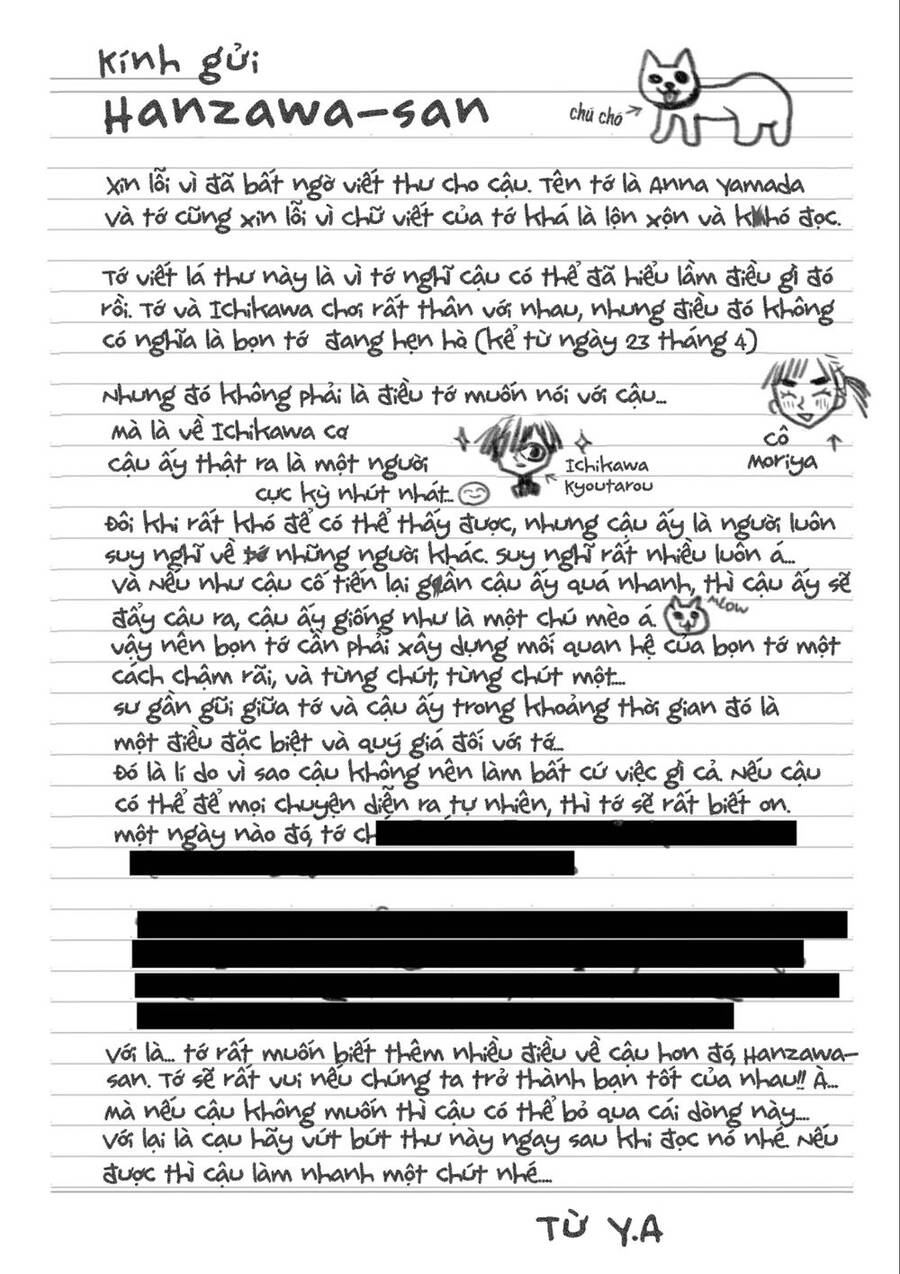 Kính gửi
Hanzawa-san
chú chó
Xin lỗi vì đã bất ngờ viết thư cho cậu. Tên tớ là Anna Yamada
và tớ cũng xin lỗi vì chữ viết của tớ khá là lộn xộn và khó đọc.
Tớ viết lá thư này là vì tớ nghĩ cậu có thể đã hiểu lầm điều gì đó
rồi. Tớ và Ichikawa chơi rất thân với nhau, nhưng điều đó không
có nghĩa là bọn tớ đang hẹn hò (kể từ ngày 23 tháng 4)
Nhưng đó không phải là điều tớ muốn nói với cậu...
mà là về Ichikawa cơ
cậu ấy thật ra là một người
cực kỳ nhút nhát...
Ichikawa
Kyoutarou
cô
Moriya
Đôi khi rất khó để có thể thấy được, nhưng cậu ấy là người luôn
suy nghĩ về những người khác. Suy nghĩ rất nhiều luôn á...
và Nếu như cậu cố tiến lại gần cậu ấy quá nhanh, thì cậu ấy sẽ
đẩy cậu ra, cậu ấy giống như là một chú mèo á.
meow
vậy nên bọn tớ cần phải xây dựng mối quan hệ của bọn tớ một
cách chậm rãi, và từng chút, từng chút một...
sư gần gũi giữa tớ và cậu ấy trong khoảng thời gian đó là
một điều đặc biệt và quý giá đối với tớ...
Đó là lí do vì sao cậu không nên làm bất cứ việc gì cả. Nếu cậu
có thể để mọi chuyện diễn ra tự nhiên, thì tớ sẽ rất biết ơn.
một ngày nào đó, tớ ch
với là... tớ rất muốn biết thêm nhiều điều về cậu hơn đó, Hanzawa-
san. Tớ sẽ rất vui nếu chúng ta trở thành bạn tốt của nhau!! À...
mà nếu cậu không muốn thì cậu có thể bỏ qua cái dòng này....
với lại là cạu hãy vứt bứt thư này ngay sau khi đọc nó nhé. Nếu
được thì cậu làm nhanh một chút nhé....
Từ Y.A